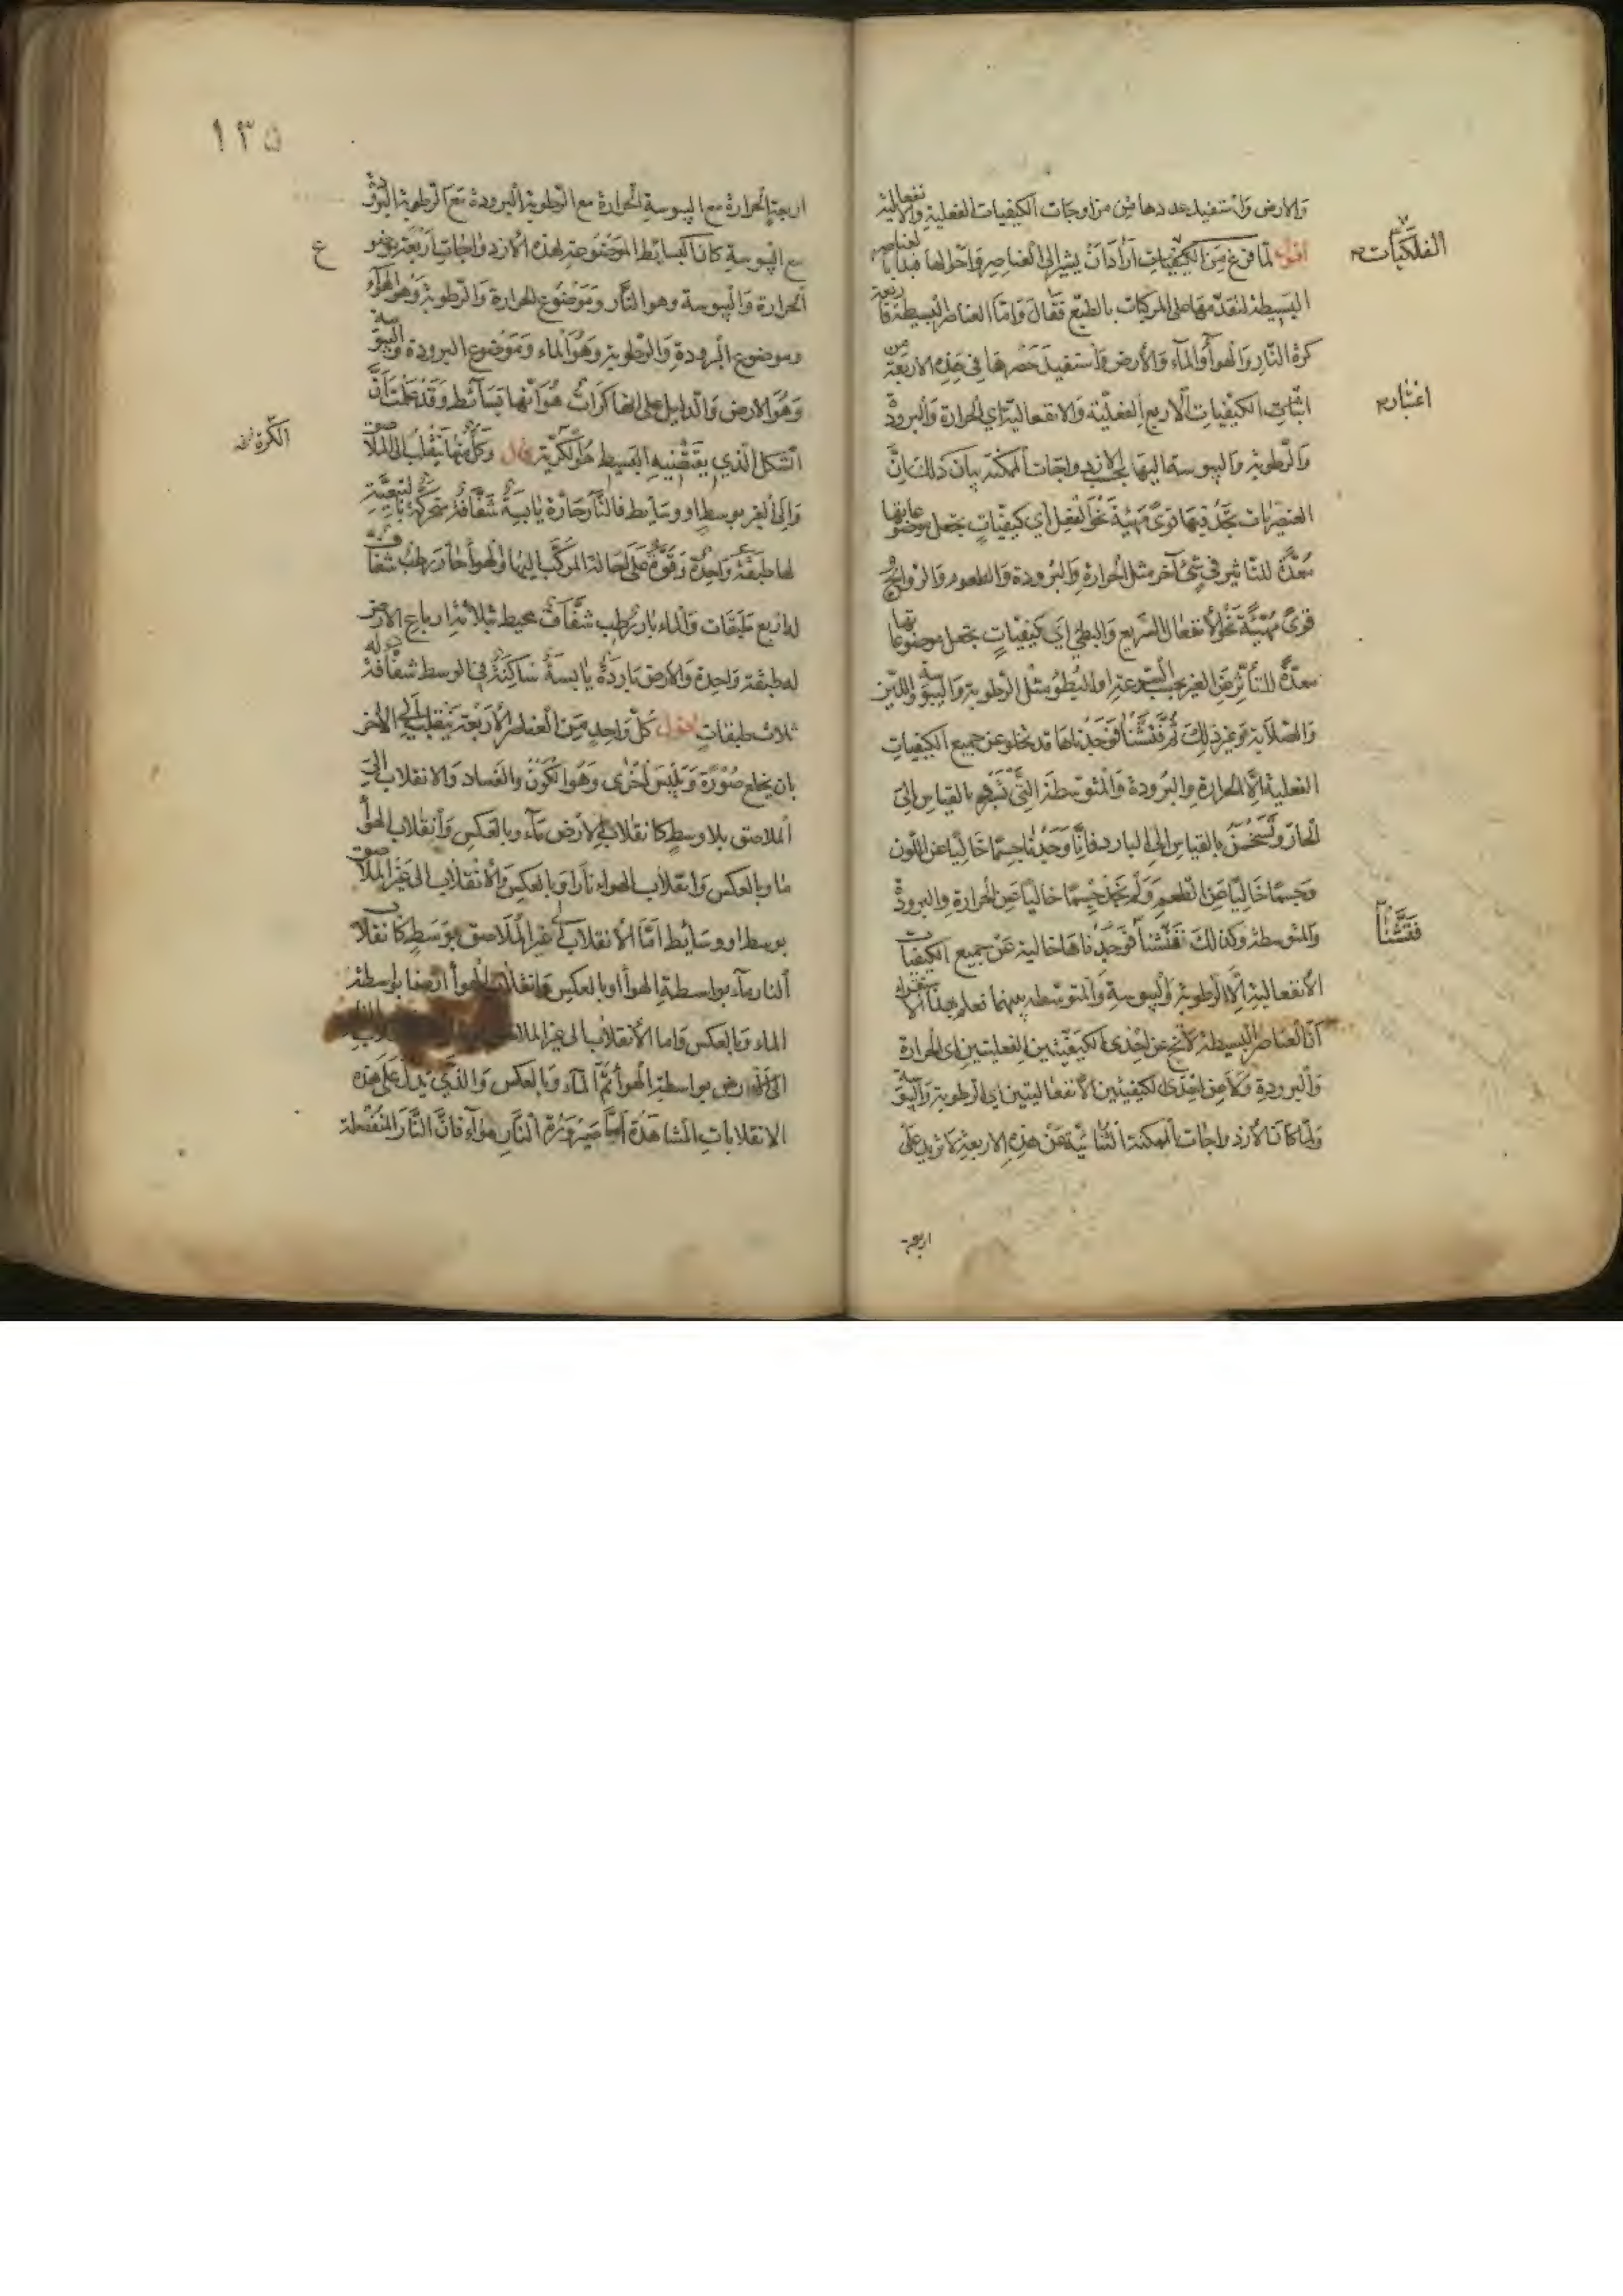 والارض واستفيد عددها من مزاوجات الكيفيات الفعلية والانفعالية
اقول لما فرغ من الكيفيات اراد ان يشير الى العناصر واحوالها فبدا بالعناصر
الفلكيات
البسيطة لتقدمها على المركبات بالطبع فقال واما العناصر البسيطة فاربعة
كرة النار والهواء والماء والارض واستفيد حصرها فى هذه الاربعة من
اثبات الكيفيات الاربع الفعلية والانفعالية اى الحرارة والبرودة
اعتبار
والرطوبة واليبوسة اليها بحسب الازدواجات الممكنة بيان ذلك ان
العنصريات نجد فيها قوى مهيئة نحو الفعل اى كيفيات تجعل موضوعاتها
معدة للتاثير فى شئ آخر مثل الحرارة والبرودة والطعوم والروايح
قوى مهيئة نحو الانفعال السريع والبطئ اى كيفيات تجعل موضوعاتها
معدة للتأثر عن الغير بحسب السرعة او البطؤ مثل الرطوبة واليبوسة واللين
والصلابة وغير ذلك ثم فتشنا فوجدناها قد تخلو عن جميع الكيفيات
الفعلية الا الحرارة والبرودة والمتوسطة التى تستبرد بالقياس الى
الحار وتستخسن بالقياس الى البارد فانا وجدنا جسما خاليا عن اللون
وجسما خاليا عن الطعم ولم نجد جسما خاليا عن الحرارة والبرودة
والمتوسطة وكذلك فتشنا فوجدناها خالية عن جميع الكيفيات
فتشنا
الانفعالية الا الرطوبة واليبوسة والمتوسطة بينهما فعلم بهذا الاستقراء
ان العناصر البسيطة لا تخ عن احدى الكيفيتين الفعليتين اى الحرارة
والبرودة ولا عن احدى الكيفيتين الانفعاليتين اى الرطوبة واليبوسة
ولما كان الازدواجات الممكنة الثنائية عن هذه الاربعة لا تزيد على
اربعة
١٣٥
اربعة الحرارة مع اليبوسة الحرارة مع الرطوبة البرودة مع الرطوبة البرودة
مع اليبوسة كانت البسائط الموضوعة لهذه الازدواجات اربعة موضوع
ع
الحرارة واليبوسة وهو النار وموضوع الحرارة والرطوبة وهو الهواء
وموضوع البرودة والرطوبة وهو الماء وموضوع البرودة واليبوسة
وهو الارض والدليل على انها كرات هو انها بسائط وقد علمت ان
الشكل الذي يقتضيه البسيط هو الكرية قال وكل منها ينقلب الى الملاصق
الكرة
والى الغير بوسط او وسائط فالنار حارة يابسة شفافة متحركة بالتبعية
لها طبقة واحدة وقوة على احالة المركب اليها والهواء حار رطب شفاف
له اربع طبقات والماء بارد رطب شفاف محيط بثلاثة ارباع الارض
له طبقة واحدة والارض باردة يابسة ساكنة فى الوسط شفافة لها
ثلاث طبقات اقول كل واحد من العناصر الاربعة ينقلب الى الاخر
بان يخلع صورة ويلبس اخرى وهو الكون والفساد والانقلاب الى
الملاصق بلا وسط كانقلاب الارض ماء وبالعكس وانقلاب الهواء
ماء وبالعكس وانقلاب الهواء نارا وبالعكس والانقلاب الى غير الملاصق
بوسط او وسائط اما الانقلاب الى غير الملاصق بوسط كانقلاب
النار ماء بواسطة الهواء او بالعكس وانقلاب الهواء ارضا بواسطة
الماء وبالعكس واما الانقلاب الى غير الملاصق
الى الارض بواسطة الهواء ثم الماء وبالعكس والذى يدل على هذه
الانقلابات المشاهدة اما صيرورة النار هواء فان النار المنفصلة